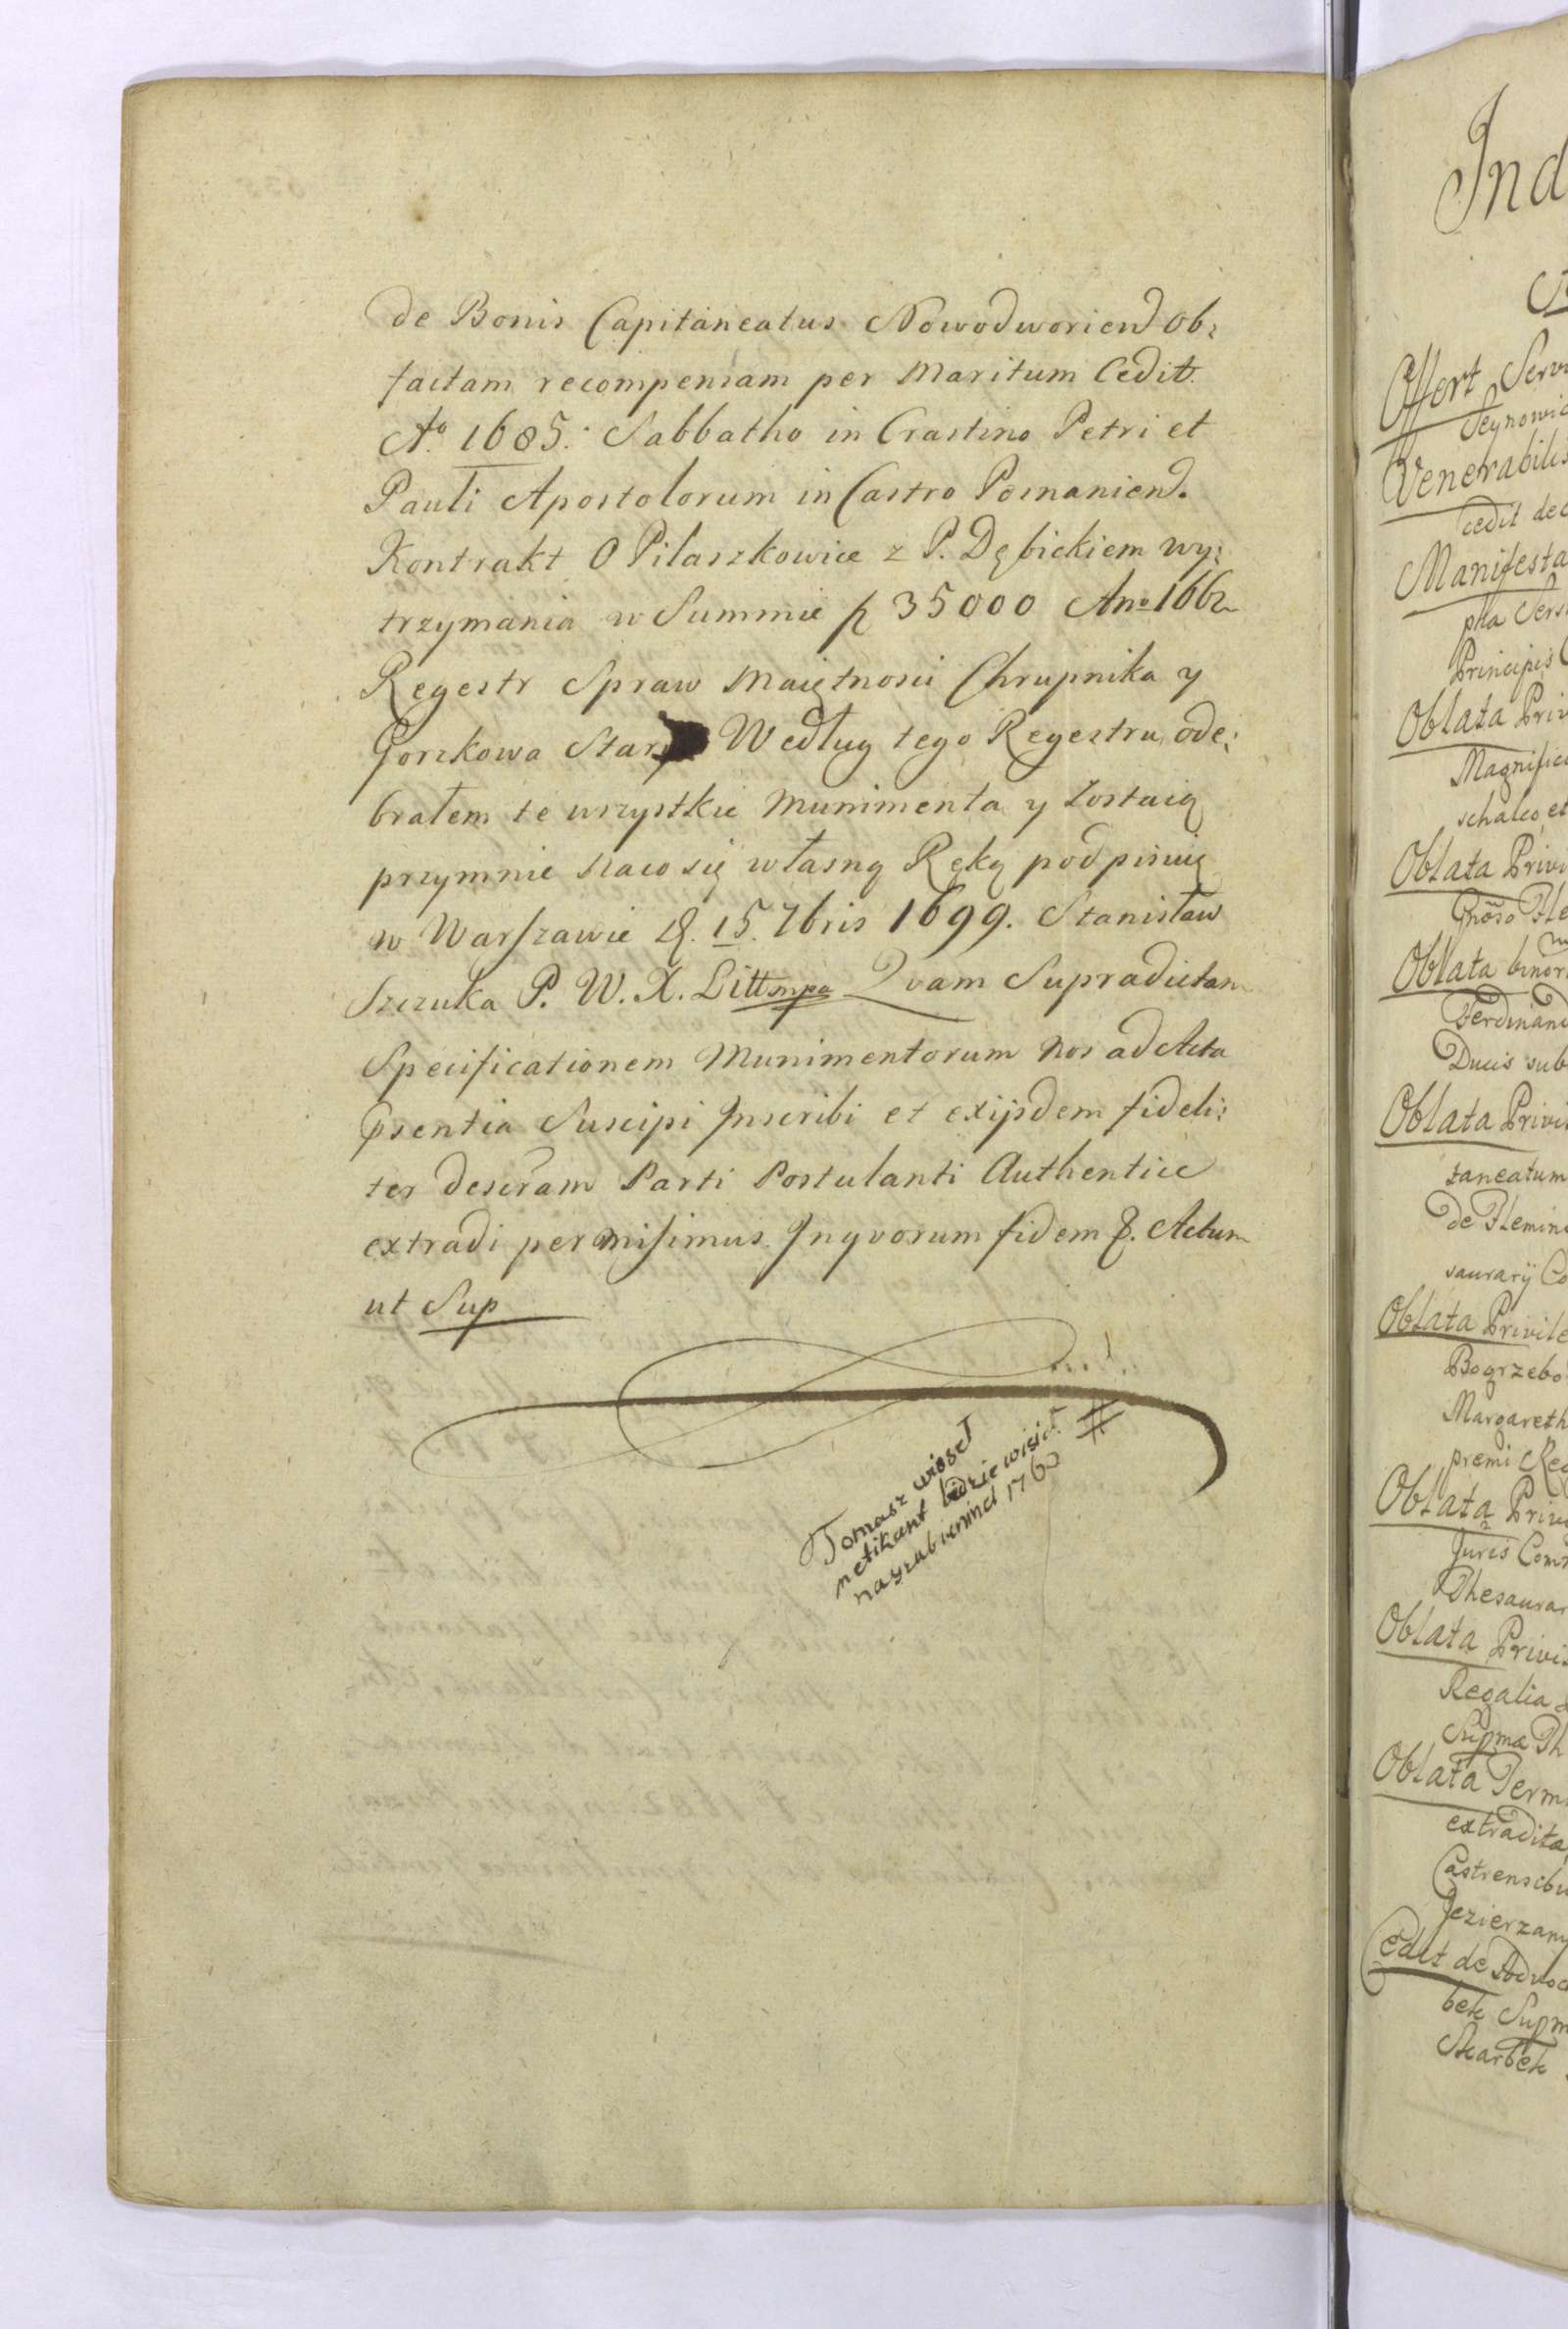 de Bonis Capitaneatus Nowodworien ob:
factam recompensam per Maritum Cedit.
Aº 1685. Sabbatho in Crastino Petri et
Pauli Apostolorum in Castro Posnanien.
Kontrakt O Pilaszkowice z P. Dębickiem wy:
trzymania w Summie 35000 Anº 1662
Regestr Spraw Maiętnosci Chrupnika y
Gorzkowa Stary Według tego Regestru ode:
brałem te wszystkie Munimenta y zostaią
przymnie Naco się własną Ręką podpisuię
w Warszawie d. 15. 7bris 1699. Stanisław
Szczuka P. W. X. Litt mpa Qvam Supradictam
Specificationem Munimentorum Nos ad Acta
psentia Suscipi Inscribi et exijsdem fideli:
ter descram Parti Postulanti Authentice
extradi permisimus Inqvorum fidem &. Actum
ut Sup
Tomasz
1760
Ind
Offert Serv
Seynowic
Venerabilis
cedit dec
Manifesta
Principis
Oblata Priv
Magnific
schalco et
Oblata Privi
Gnoso Fle
Oblata binor
Ferdinand
Ducis sub
Oblata Privi
taneatum
de Flemin
saurarij Co
Oblata Privile
Bogrzebo
Margareth
premi Reg
Oblata Privi
Juris Com
Thesaurar
Oblata Privi
Regalia
Supma Th
Oblata Term
extradita
Castrensibu
Jezierzany
Cedit de Advoc
bek Supm
Skarbek